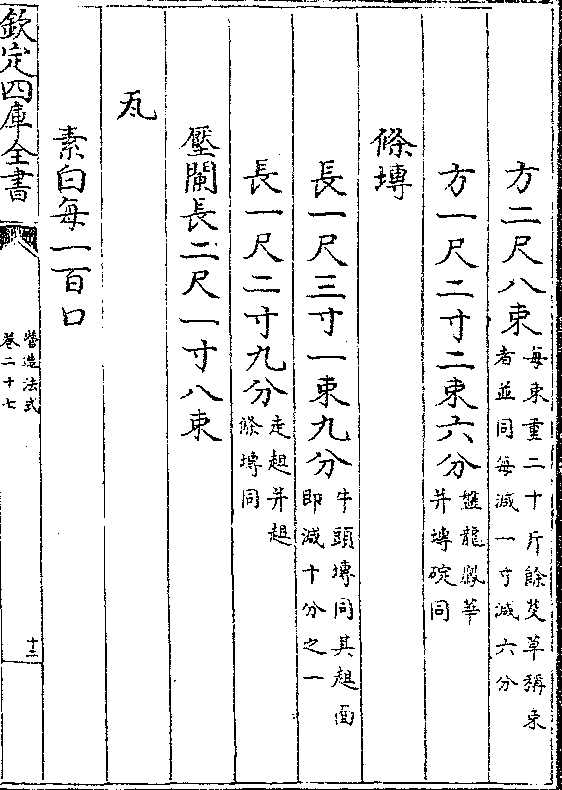 方二尺八束每束重二十斤餘芟草稱束
者並同每減一寸減六分
方一尺二寸二束六分盤龍鳳華
并塼碇同
條塼
長一尺三寸一束九分牛頭塼同其趄面
即減十分之一
長一尺二寸九分走趄并趄
條塼同
壓闌長二尺一寸八束
瓦
素白每一百口
欽定四庫全書
營造法式
卷二十七
十三